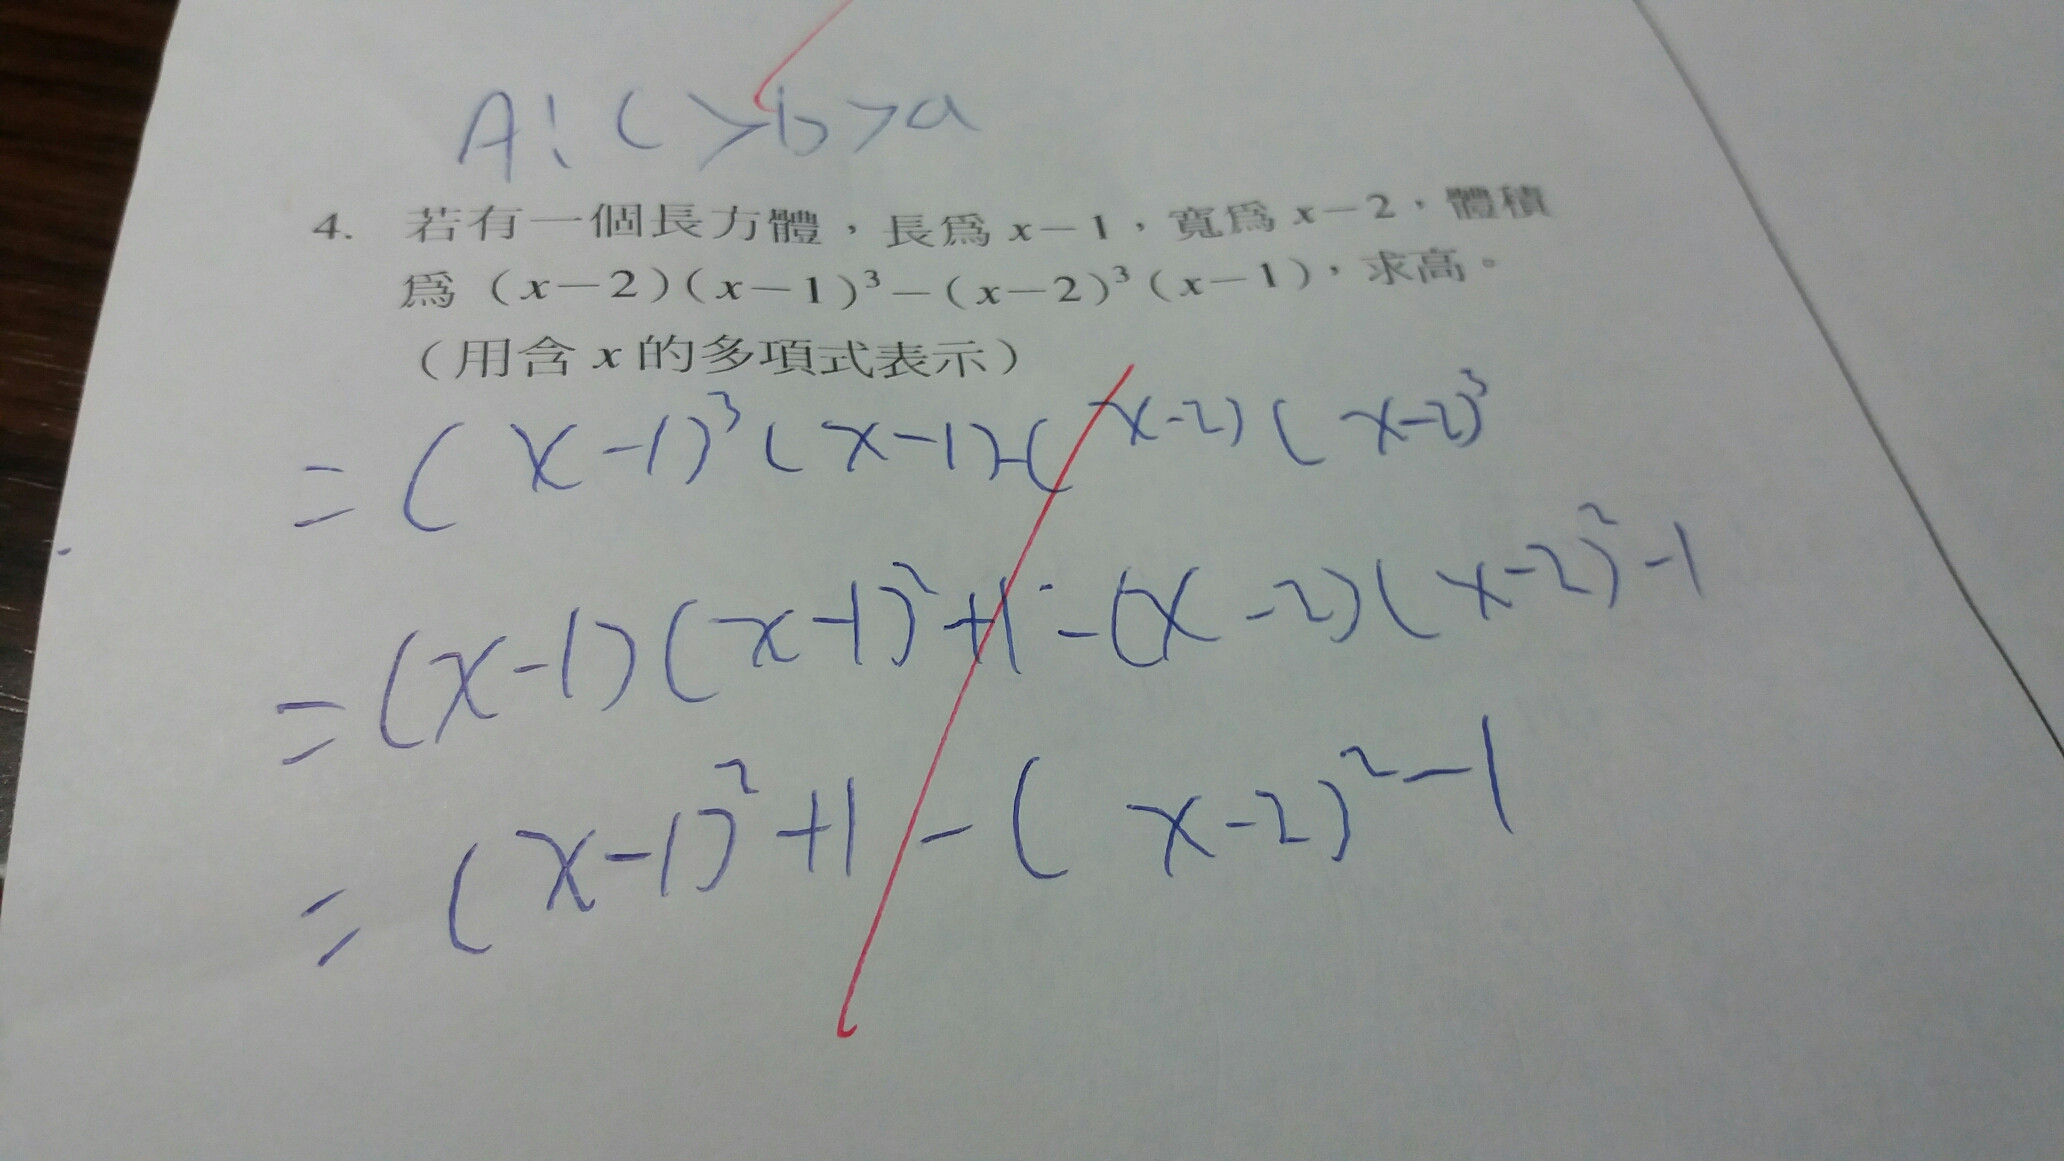 A: c>b>a
4. 若有一個長方體，長為 x－1，寬為 x－2，體積
為（x－2）（x－1）³－（x－2）³（x－1），求高。
（用含 x 的多項式表示）
=(x-1)³(x-1)-(x-2)(x-2)³
=(x-1)(x-1)²+1-(x-2)(x-2)²-1
=(x-1)²+1-(x-2)²-1